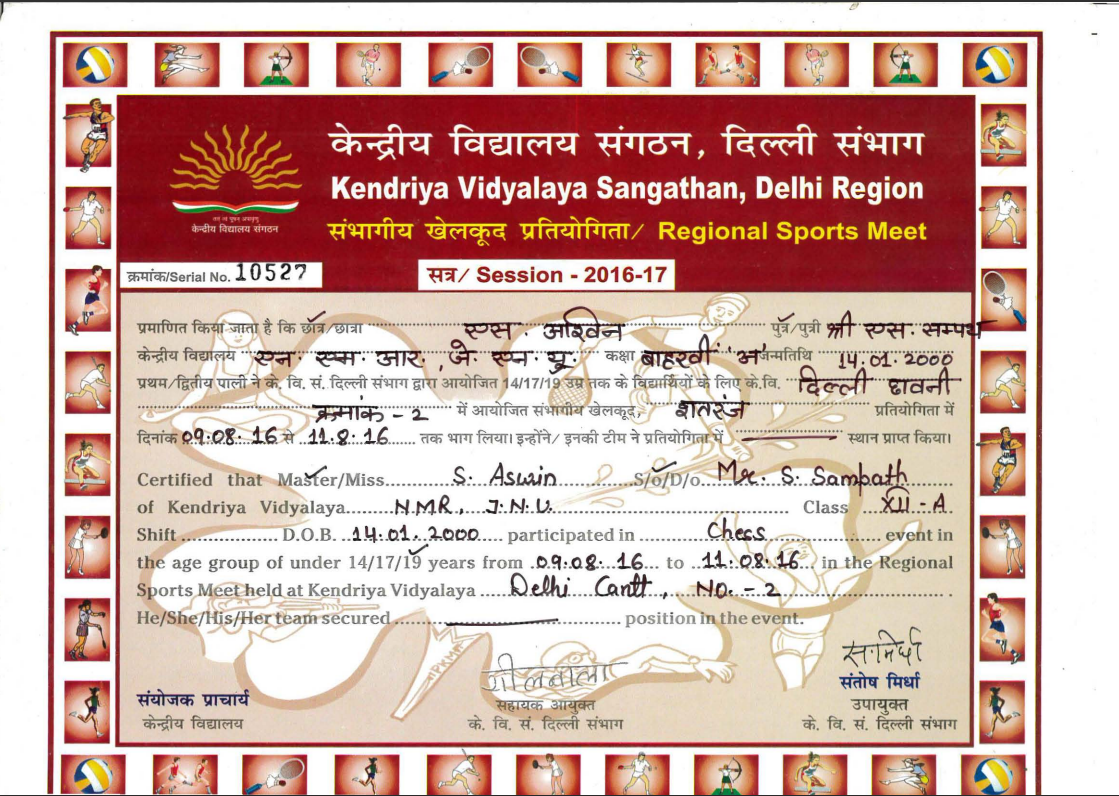 केन्द्रीय विद्यालय संगठन, दिल्ली संभाग
Kendriya Vidyalaya Sangathan, Delhi Region
संभागीय खेलकूद प्रतियोगिता/ Regional Sports Meet
केन्द्रीय विद्यालय संगठन
क्रमांक/Serial No. 10527
सत्र/ Session - 2016-17
प्रमाणित किया जाता है कि छात्र/छात्रा एस. अश्विन पुत्र/पुत्री श्री एस. सम्पथ
केन्द्रीय विद्यालय एन एम आर, जे. एन. यू. कक्षा बाहरवीं 'अ' जन्मतिथि 14.01.2000
प्रथम/द्वितीय पाली ने के. वि. सं. दिल्ली संभाग द्वारा आयोजित 14/17/19 उम्र तक के विद्यार्थियों के लिए के.वि. दिल्ली छावनी
क्रमांक - 2 में आयोजित संभागीय खेलकूद, शतरंज प्रतियोगिता में
दिनांक 09.08.16 से 11.8.16 तक भाग लिया। इन्होंने/ इनकी टीम ने प्रतियोगिता में स्थान प्राप्त किया।
Certified that Master/Miss S. Aswin S/o/D/o Mr. S. Sampath
of Kendriya Vidyalaya NMR, J.N.U. Class XII - A
Shift D.O.B. 14.01.2000 participated in Chess event in
the age group of under 14/17/19 years from 09.08.16 to 11.08.16 in the Regional
Sports Meet held at Kendriya Vidyalaya Delhi Cantt, NO. - 2
He/She/His/Her team secured position in the event.
संयोजक प्राचार्य
केन्द्रीय विद्यालय
सहायक आयुक्त
के. वि. सं. दिल्ली संभाग
संतोष मिर्धा
उपायुक्त
के. वि. सं. दिल्ली संभाग